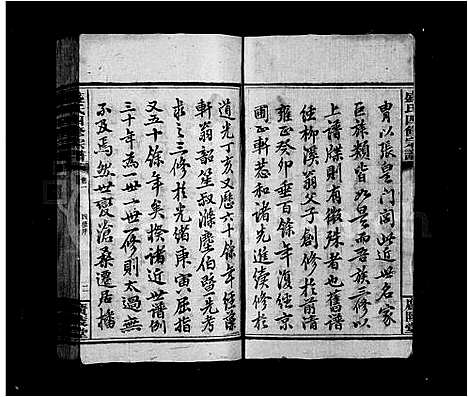 冑以張皇門閥此近世名家
巨族類皆以是而吾族三修以
上譜牒則有微殊者也舊譜
經柳溪翁父子創修於前清
雍正癸卯垂百餘年復經京
圃正軒惹和諸先進續修於
道光丁亥又歷六十餘年經蓮
軒翁韶笙叔滌塵伯暨先考
求之三修於光緒庚寅屈指
又五十餘年矣揆諸近世譜例
三十年為一世一世一修則太過無
不及焉然世變滄桑遷居播
盛氏四修宗譜
四修序
二
廣陵堂